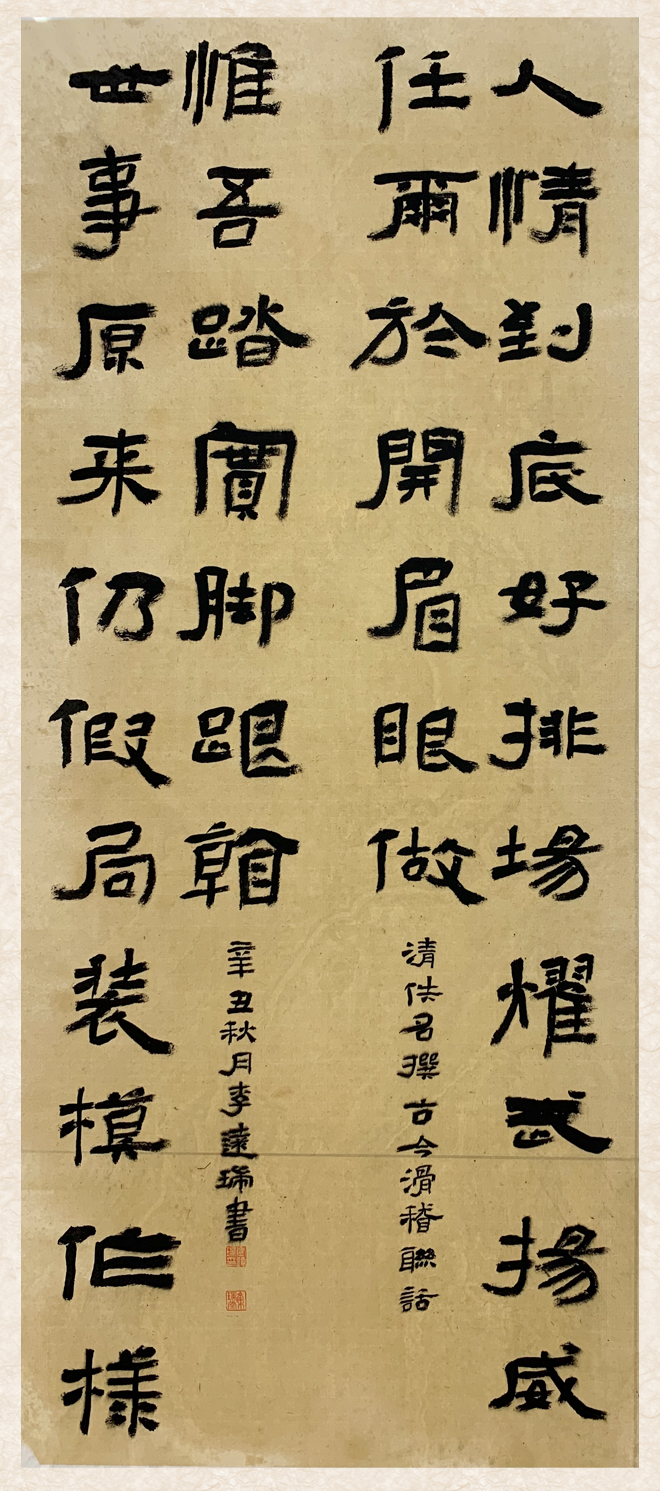 人情到底好排場耀武揚威
任爾於開眉眼做
清佚名撰古今滑稽聯話
世事原来仍假局装模作樣
惟吾踏實脚跟看
辛丑秋月李遠瑞書